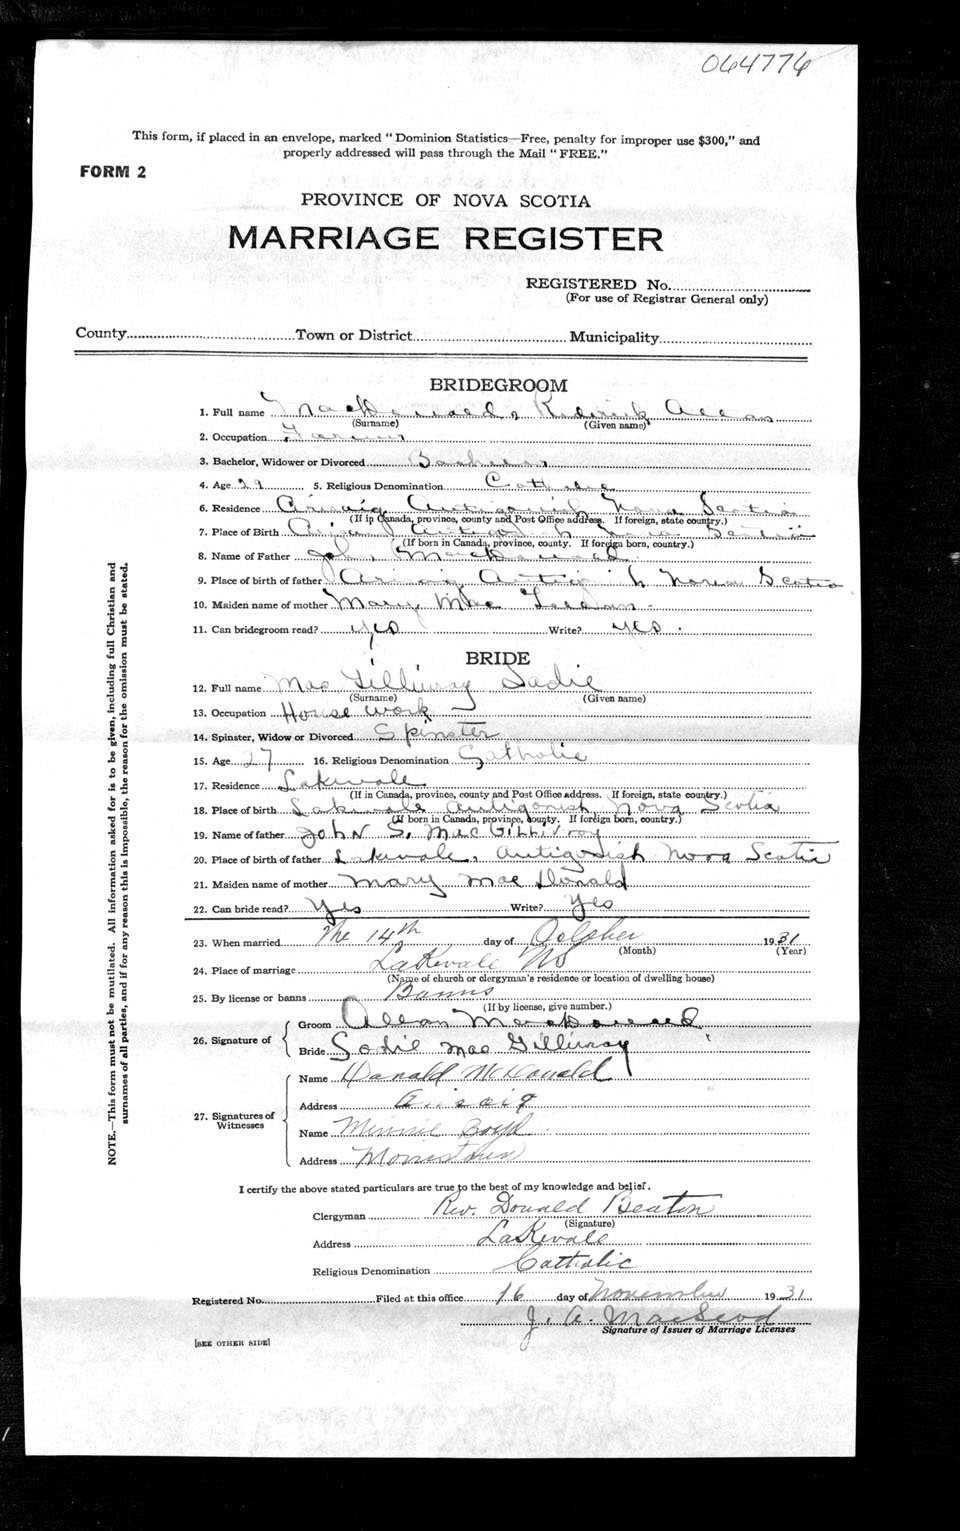 064776
This form, if placed in an envelope, marked "Dominion Statistics—Free, penalty for improper use $300," and
properly addressed will pass through the Mail "FREE."
FORM 2
PROVINCE OF NOVA SCOTIA
MARRIAGE REGISTER
REGISTERED No.
(For use of Registrar General only)
County Town or District Municipality
BRIDEGROOM
1. Full name MacDonald, Roderick Allan
(Surname) (Given name)
2. Occupation Farmer
3. Bachelor, Widower or Divorced Bachelor
4. Age 29 5. Religious Denomination Catholic
6. Residence Arisaig Antigonish Nova Scotia
(If in Canada, province, county and Post Office address. If foreign, state country.)
7. Place of Birth Arisaig Antigonish Nova Scotia
(If born in Canada, province, county. If foreign born, country.)
8. Name of Father John MacDonald
9. Place of birth of father Arisaig Antigonish Nova Scotia
10. Maiden name of mother Mary Mac
11. Can bridegroom read? yes Write? yes.
BRIDE
12. Full name Mac Gillivray Sadie
(Surname) (Given name)
13. Occupation House work
14. Spinster, Widow or Divorced Spinster
15. Age 27 16. Religious Denomination Catholic
17. Residence Lakevale
(If in Canada, province, county and Post Office address. If foreign, state country.)
18. Place of birth Lakevale Antigonish Nova Scotia
(If born in Canada, province, county. If foreign born, country.)
19. Name of father John S. MacGillivray
20. Place of birth of father Lakevale, Antigonish Nova Scotia
21. Maiden name of mother Mary Mac Donald
22. Can bride read? Yes Write? Yes
23. When married The 14th day of October 1931
(Month) (Year)
24. Place of marriage LaKevale NS
(Name of church or clergyman's residence or location of dwelling house)
25. By license or banns Banns
(If by license, give number.)
26. Signature of Groom Allan MacDonald
Bride Sadie Mac Gillivray
27. Signatures of Witnesses
Name Donald McDonald
Address Arisaig
Name Minnie Boyd
Address Morristown
I certify the above stated particulars are true to the best of my knowledge and belief.
Clergyman Rev. Donald Beaton
(Signature)
Address LaKevale
Religious Denomination Catholic
Registered No. Filed at this office 16 day of November 1931
J. A. MacLeod
Signature of Issuer of Marriage Licenses
[SEE OTHER SIDE]
NOTE.—This form must not be mutilated. All information asked for is to be given, including full Christian and
surnames of all parties, and if for any reason this is impossible, the reason for the omission must be stated.